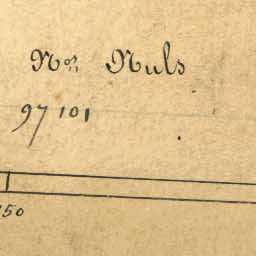 Nos Nuls
97 101
250